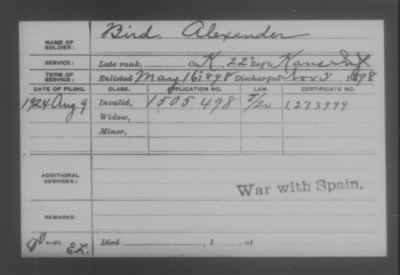 Bird, Alexander
NAME OF SOLDIER:
SERVICE: Late rank, Co K, 22" Reg't Kans Inf
TERM OF SERVICE: Enlisted May 16, 1898 Discharged Nov 3, 1898
DATE OF FILING. CLASS. APPLICATION NO. LAW. CERTIFICATE NO.
1924 Aug 9 Invalid, 1505 498 5/20 1273999
Widow,
Minor,
ADDITIONAL SERVICES:
War with Spain.
REMARKS:
Died , 1 , at